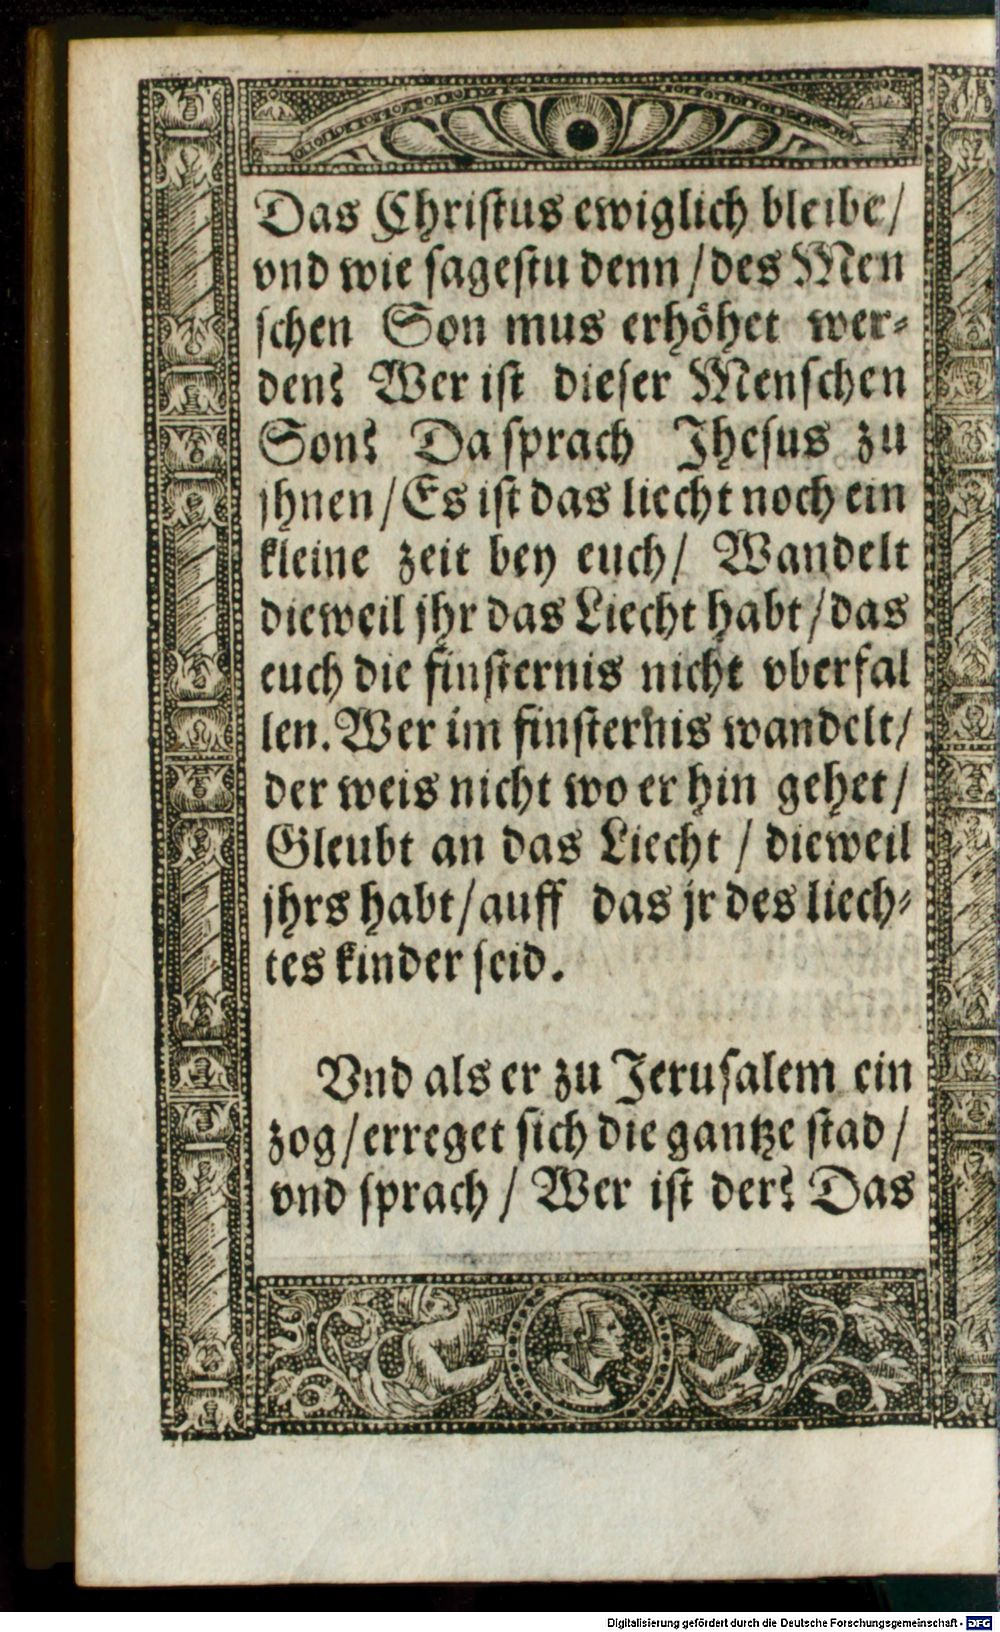 Das Christus ewiglich bleibe/
vnd wie sagestu denn/des Men
schen Son mus erhöhet wer-
den? Wer ist dieser Menschen
Son? Da sprach Jhesus zu
jhnen/Es ist das liecht noch ein
kleine zeit bey euch/ Wandelt
dieweil jhr das Liecht habt/das
euch die finsternis nicht vberfal
len. Wer im finsternis wandelt/
der weis nicht wo er hin gehet/
Gleubt an das Liecht / dieweil
jhrs habt/auff das jr des liech-
tes kinder seid.
Vnd als er zu Jerusalem ein
zog/erreget sich die gantze stad/
vnd sprach/ Wer ist der? Das
Digitalisierung gefördert durch die Deutsche Forschungsgemeinschaft - DFG